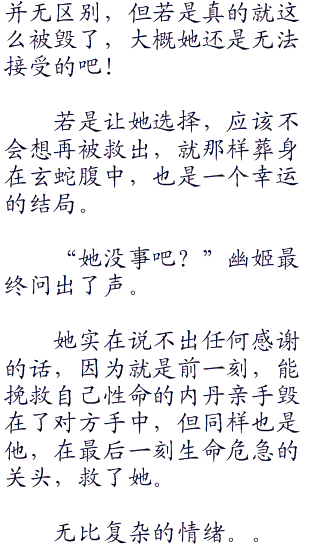 并无区别，但若是真的就这
么被毁了，大概她还是无法
接受的吧！
若是让她选择，应该不
会想再被救出，就那样葬身
在玄蛇腹中，也是一个幸运
的结局。
“她没事吧？”幽姬最
终问出了声。
她实在说不出任何感谢
的话，因为就是前一刻，能
挽救自己性命的内丹亲手毁
在了对方手中，但同样也是
他，在最后一刻生命危急的
关头，救了她。
无比复杂的情绪。。